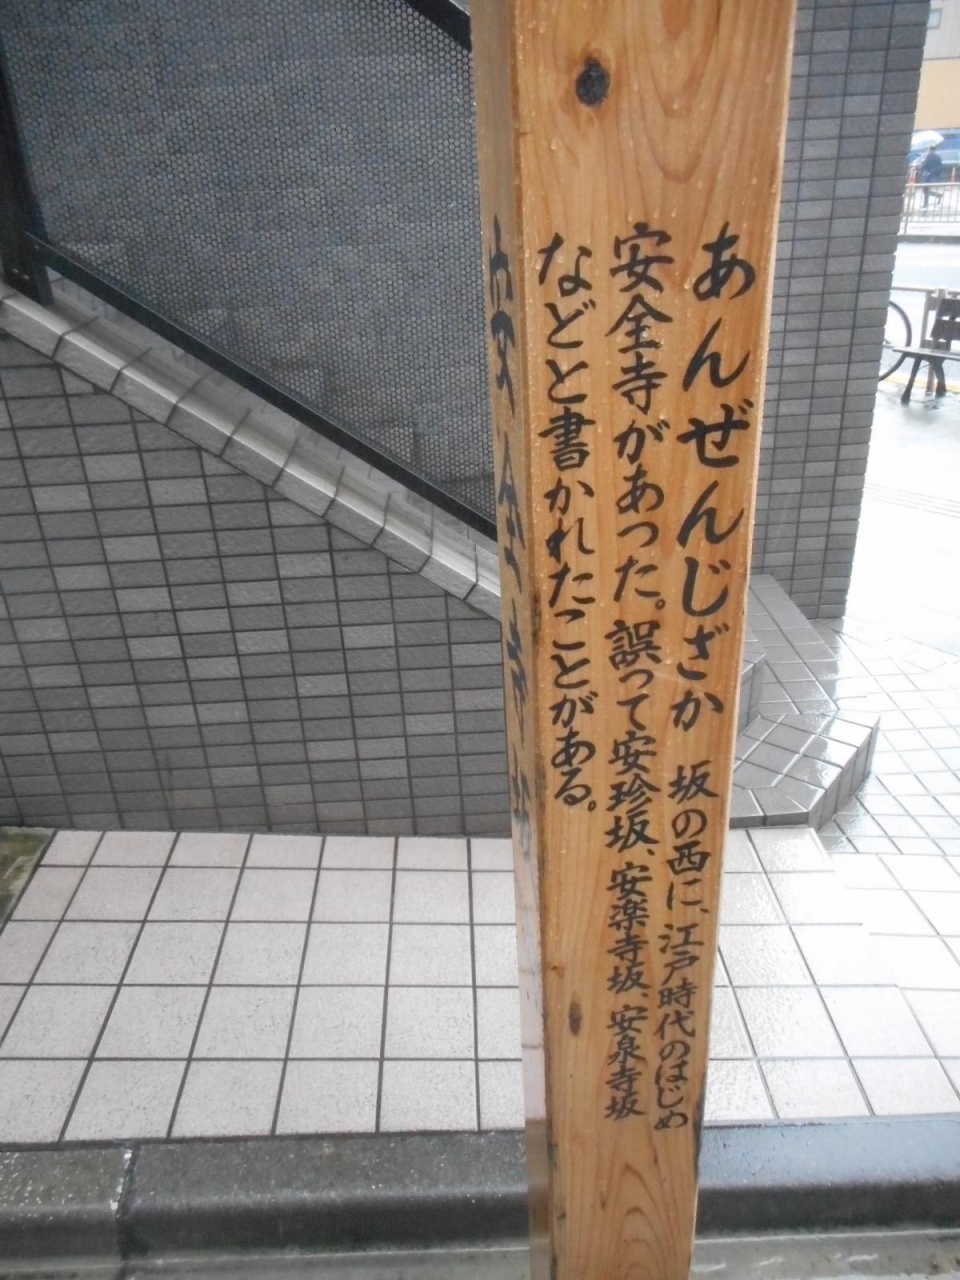 あんぜんじざか 坂の西に、江戸時代のはじめ
安全寺があった。誤って安珍坂、安楽寺坂、安泉寺坂
などと書かれたことがある。
安全寺坂